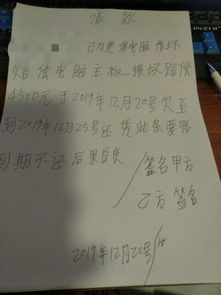 借款
已方意 电脑 损坏
赔偿电脑主板损坏赔偿
4500元于2019年12月20号欠至
到2019年12月25号还凭此条要账
到期不还后果自负
签名甲方
乙方签名
2019年12月20号